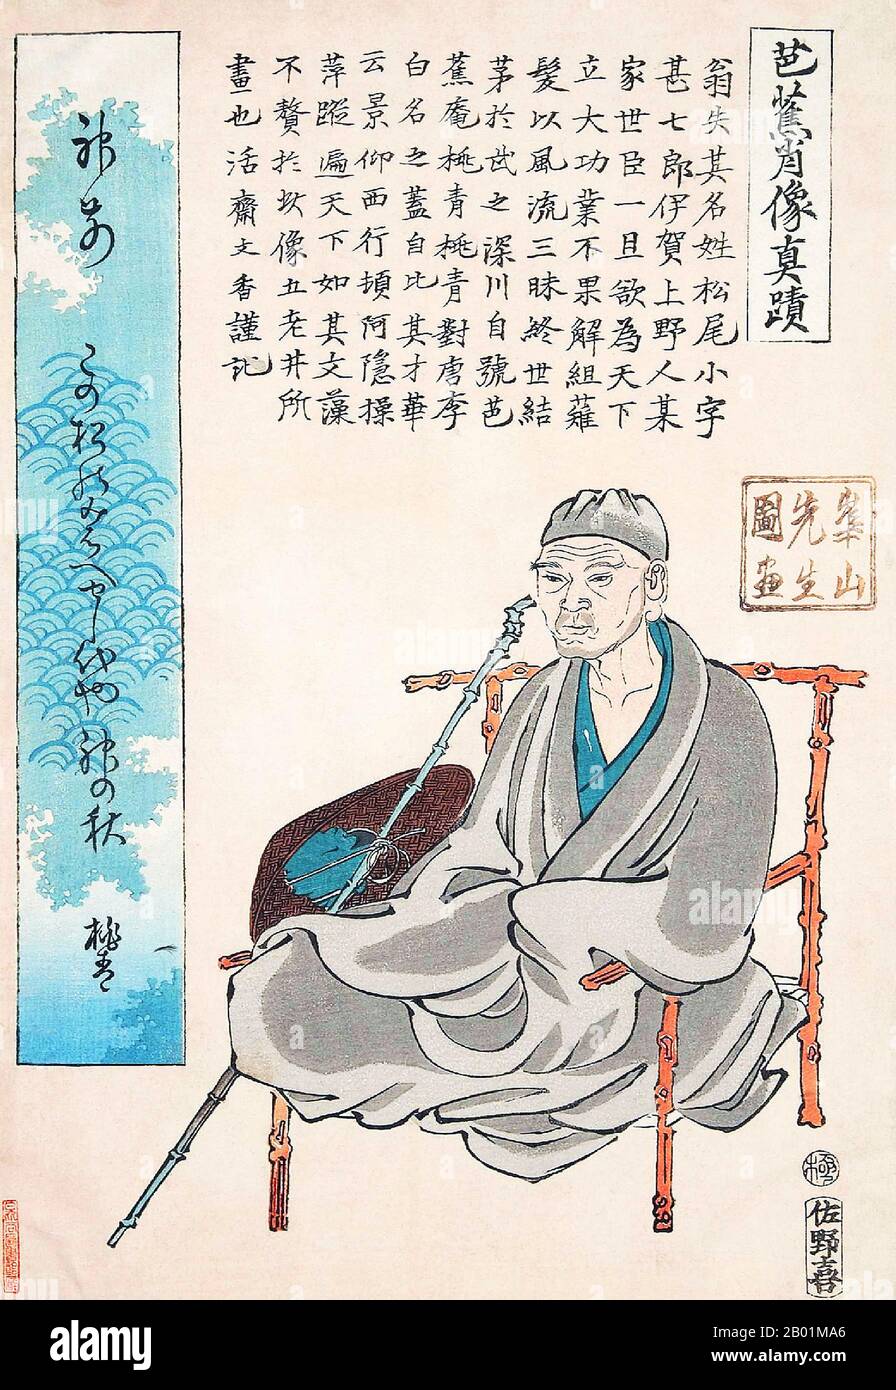 芭蕉肖像真蹟
翁失其名姓松尾小字
甚七郎伊賀上野人某
家世臣一旦欲為天下
立大功業不果解組薙
髪以風流三昧終世結
茅於武之深川自號芭
蕉庵桃青桃青對唐李
白名之蓋自比其才華
云景仰西行頓阿隱操
萍蹤遍天下如其文藻
不贅於玆像五老井所
畫也活齋文香謹記
崋山
先生
圖画
神前
この松のみばへせし代や神の秋
桃青
極
佐野喜
alamy
Image ID: 2B01MA6
www.alamy.com